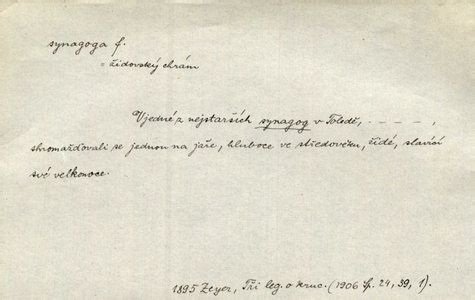 synagoga f.
= židovský chrám
V jedné z nejstarších synagog v Toledě, - - - - ,
shromažďovali se jednou na jaře, hluboce ve středověku, židé, slavící
své velkonoce.
1895 Zeyer, Tři leg. o kruc. (1906 Sp. 24, 39, 1).